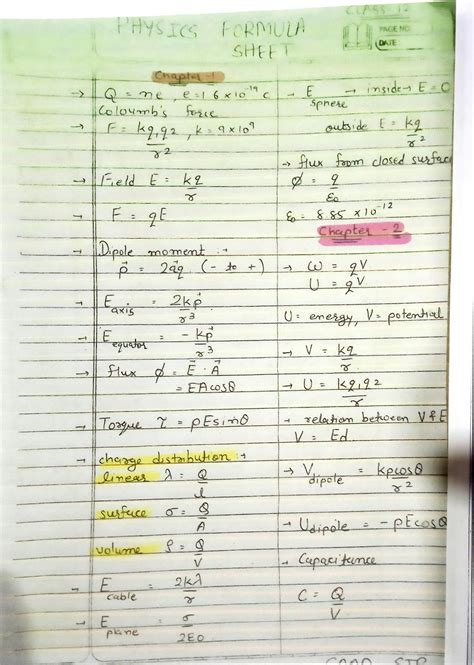 CLASS-12
PHYSICS FORMULA
SHEET
PAGE NO:
DATE:
Chapter-1
→ Q = ne, e=1.6×10⁻¹⁹ C
Coloumb's force
→ F = kq₁q₂/r², k = 9×10⁹
→ Field E = kq/r
→ F = qE
→ Dipole moment :→
p⃗ = 2a⃗q (- to +)
→ E axis = 2kp⃗/r³
→ E equator = -kp⃗/r³
→ flux ϕ = E⃗ . A⃗
= EAcosθ
→ Torque τ = pEsinθ
→ charge distribution :→
linear λ = Q/l
surface σ = Q/A
volume ρ = Q/V
→ E cable = 2kλ/r
→ E plane = σ/2E0
→ E sphere → inside → E = 0
outside E = kq/r²
→ flux from closed surface
ϕ = q/ε₀
ε₀ = 8.85 × 10⁻¹²
Chapter - 2
→ W = qV
U = qV
U = energy, V = potential
→ V = kq/r
→ U = kq₁q₂/r
→ relation between V & E
V = Ed.
→ V dipole = kpcosθ/r²
→ Udipole = -pEcosθ
→ Capacitance
C = Q/V